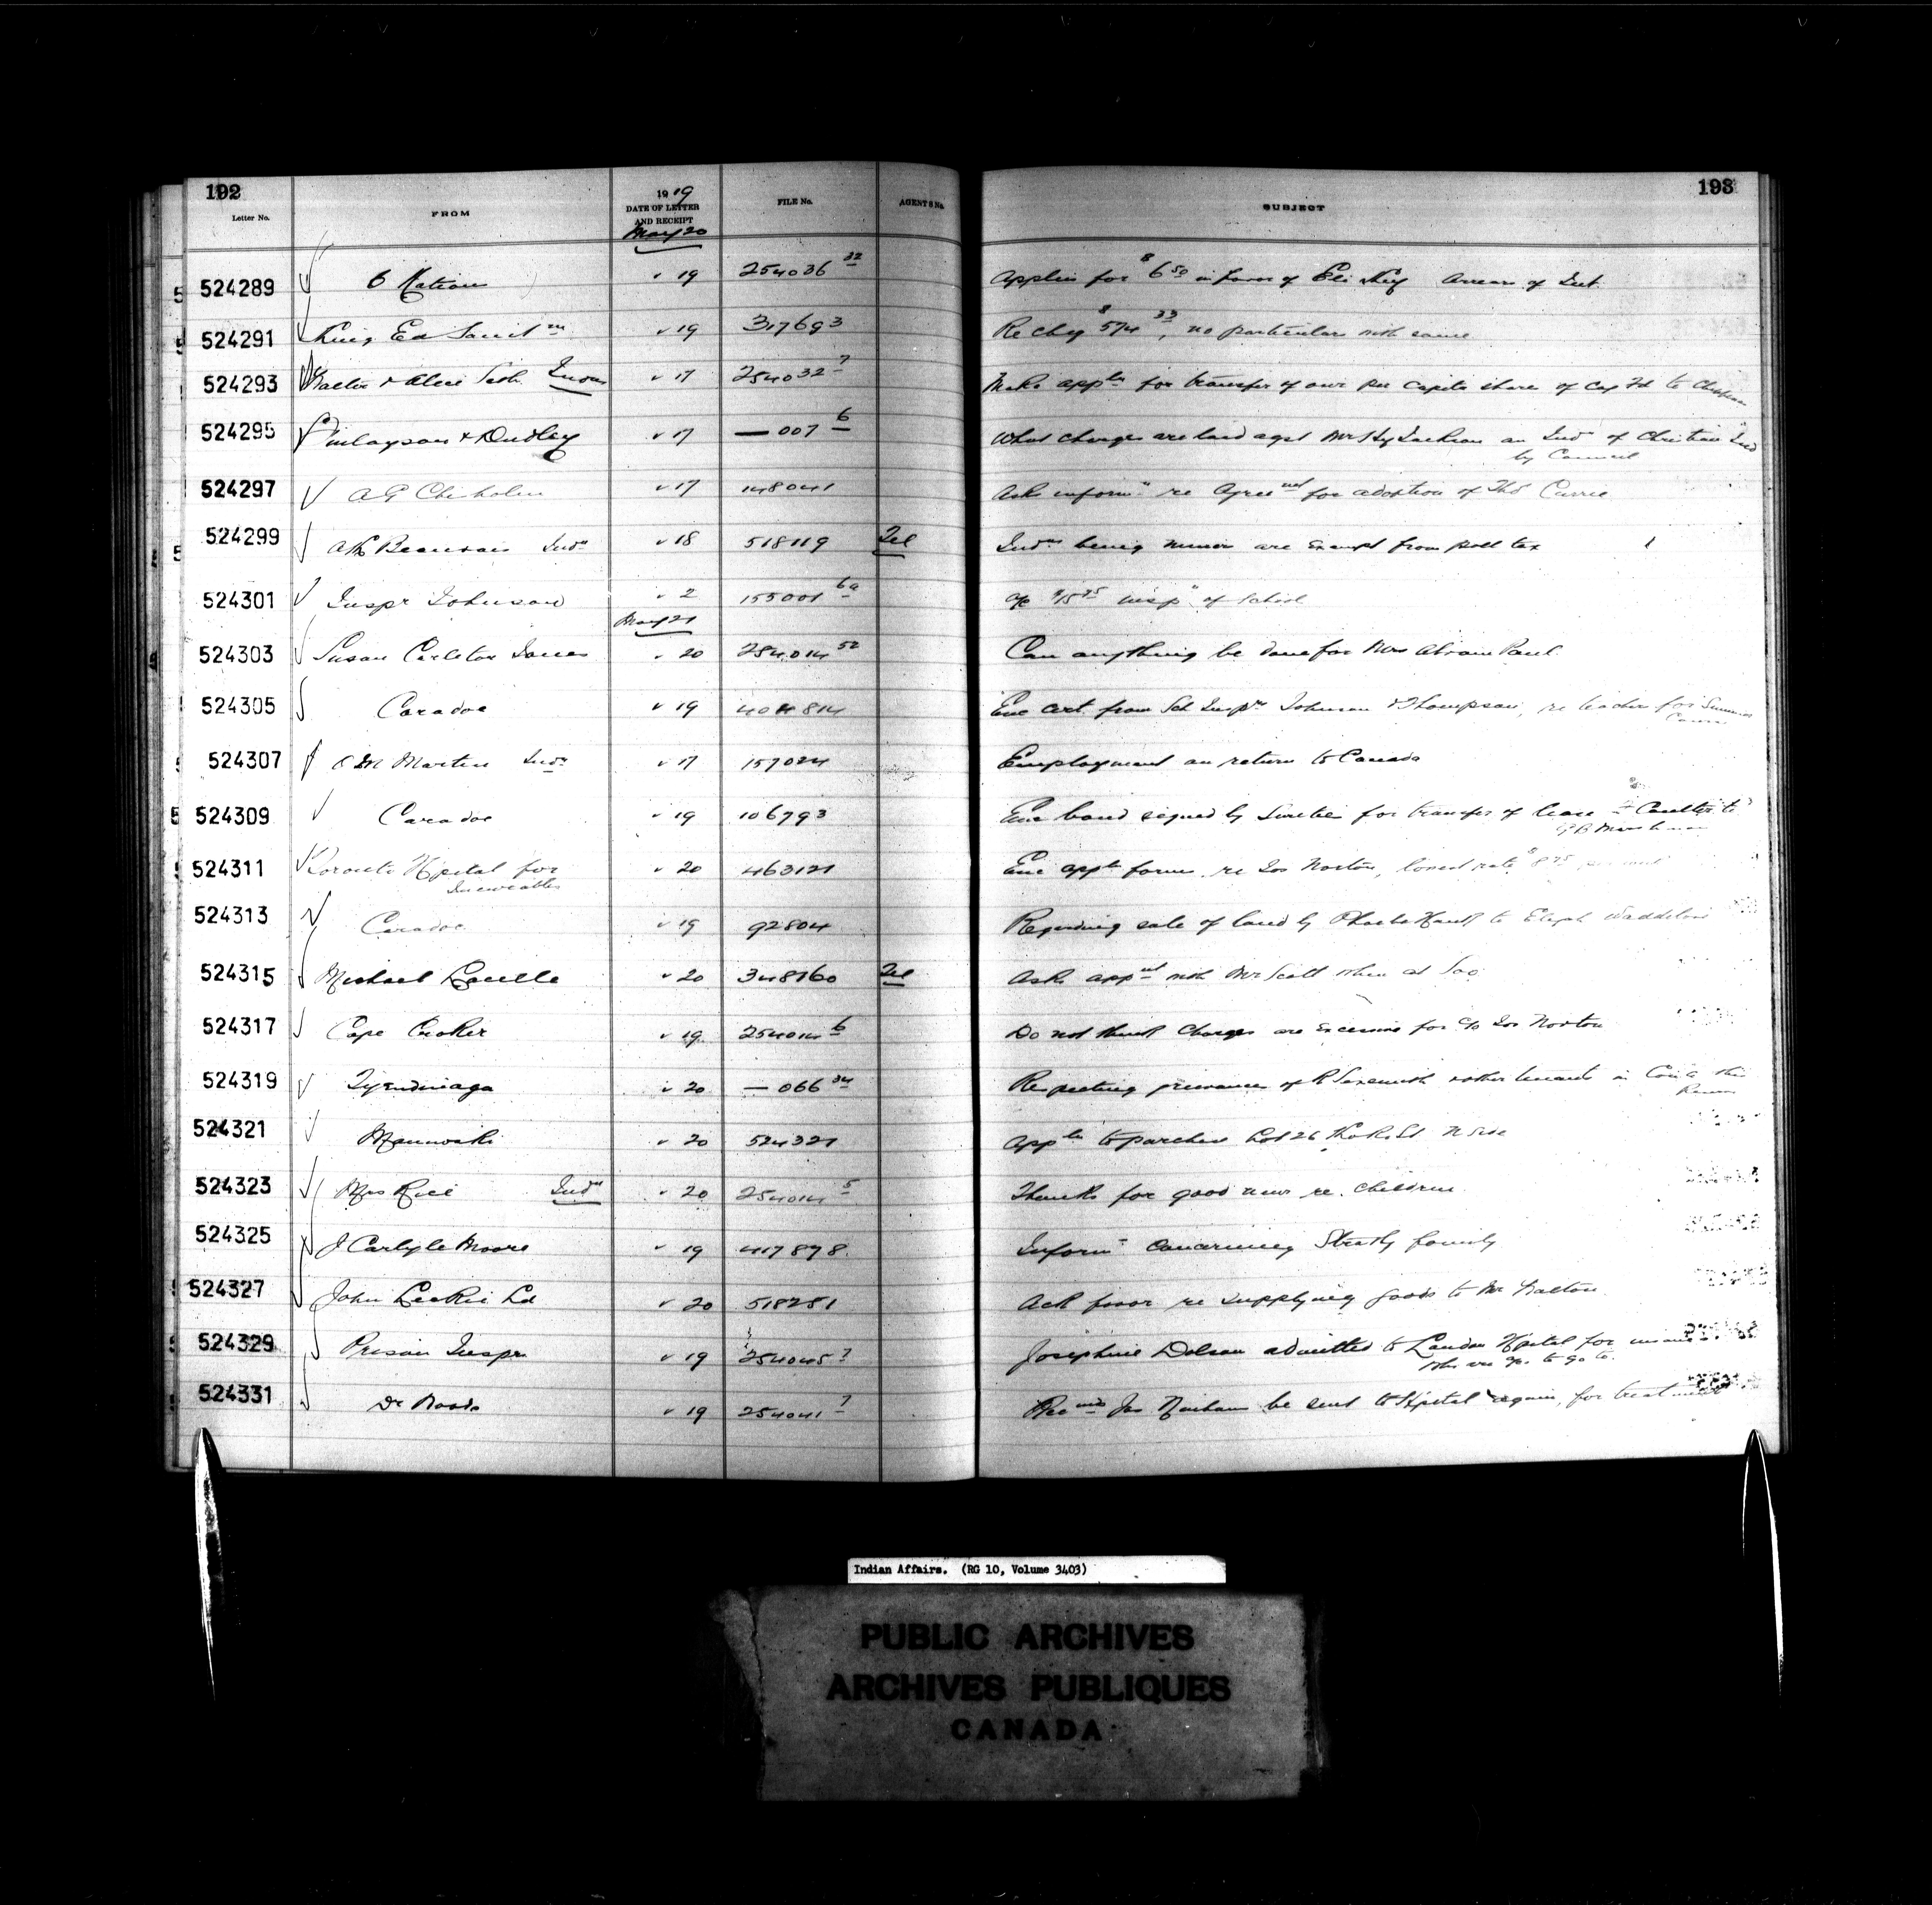 192
193
Letter No. FROM 1919 DATE OF LETTER AND RECEIPT FILE No. AGENT'S No. SUBJECT
May 20
524289 6 Nations " 19 254036 32 Applies for $6 50 in favor of Eli Key Arrears of Int.
524291 King Ed Sanit m " 19 317693 Re chq $574 33, no particulars with same
524293 Walter & Alice Indns " 17 254032 7 Make appln for transfer of our per capita share of Cap Fd to
524295 Finlayson & Dudley " 17 — 007 6 What charges are laid agst Mr Hy Jackson an Indn of Christian Isd
by Council
524297 A G Chisholm " 17 148041 Ask inform n re Agree ment for adoption of Thos Currie
524299 A K Beauvais Indn " 18 518119 Tel Indns being minors are exempt from poll tax
524301 Inspr Johnson " 2 155001 6a a/c $15 75 insp n of School
May 21
524303 Susan Carleton Jones " 20 254014 52 Can anything be done for Mrs Abram Paul
524305 Caradoc " 19 404814 Enc cert. from Sch Insprs Johnson & Thompson, re teacher for Summer
Course
524307 O M Martin Indn " 17 157024 Employment on return to Canada
524309 Caradoc " 19 106793 Enc bond signed by Sureties for transfer of lease Coulter to
G B
524311 Toronto Hpital for " 20 463121 Enc appln form re Jos Norton, lowest rate $8 75 per
Incurables
524313 Caradoc " 19 92804 Regarding sale of land by to Elijah
524315 Michael " 20 348160 Tel Asks app mt with Mr Scott when at Soo
524317 Cape Croker " 19 254014 6 Do not think charges are excessive for c/o Jos Norton
524319 Tyendinaga " 20 — 066 34 Respecting grievance of R Sexsmith & other tenants in
524321 Maniwaki " 20 524321 appln to purchase Lot 26 St N Side
524323 Mrs Rice Indn " 20 254014 5 Thanks for good news re. children
524325 J Carlyle Moore " 19 417898 Inform n concerning family
524327 John Leckie Ld " 20 518251 Ack favor re supplying goods to Mr Walton
524329 Prison Inspr " 19 254045 7 Josephine Dolson admitted to London Hpital for insane
who are a/cs to go to.
524331 Dr " 19 254041 7 Rec mds Jas Ninham be sent to Hpital again, for treatment
Indian Affairs. (RG 10, Volume 3403)
PUBLIC ARCHIVES
ARCHIVES PUBLIQUES
CANADA